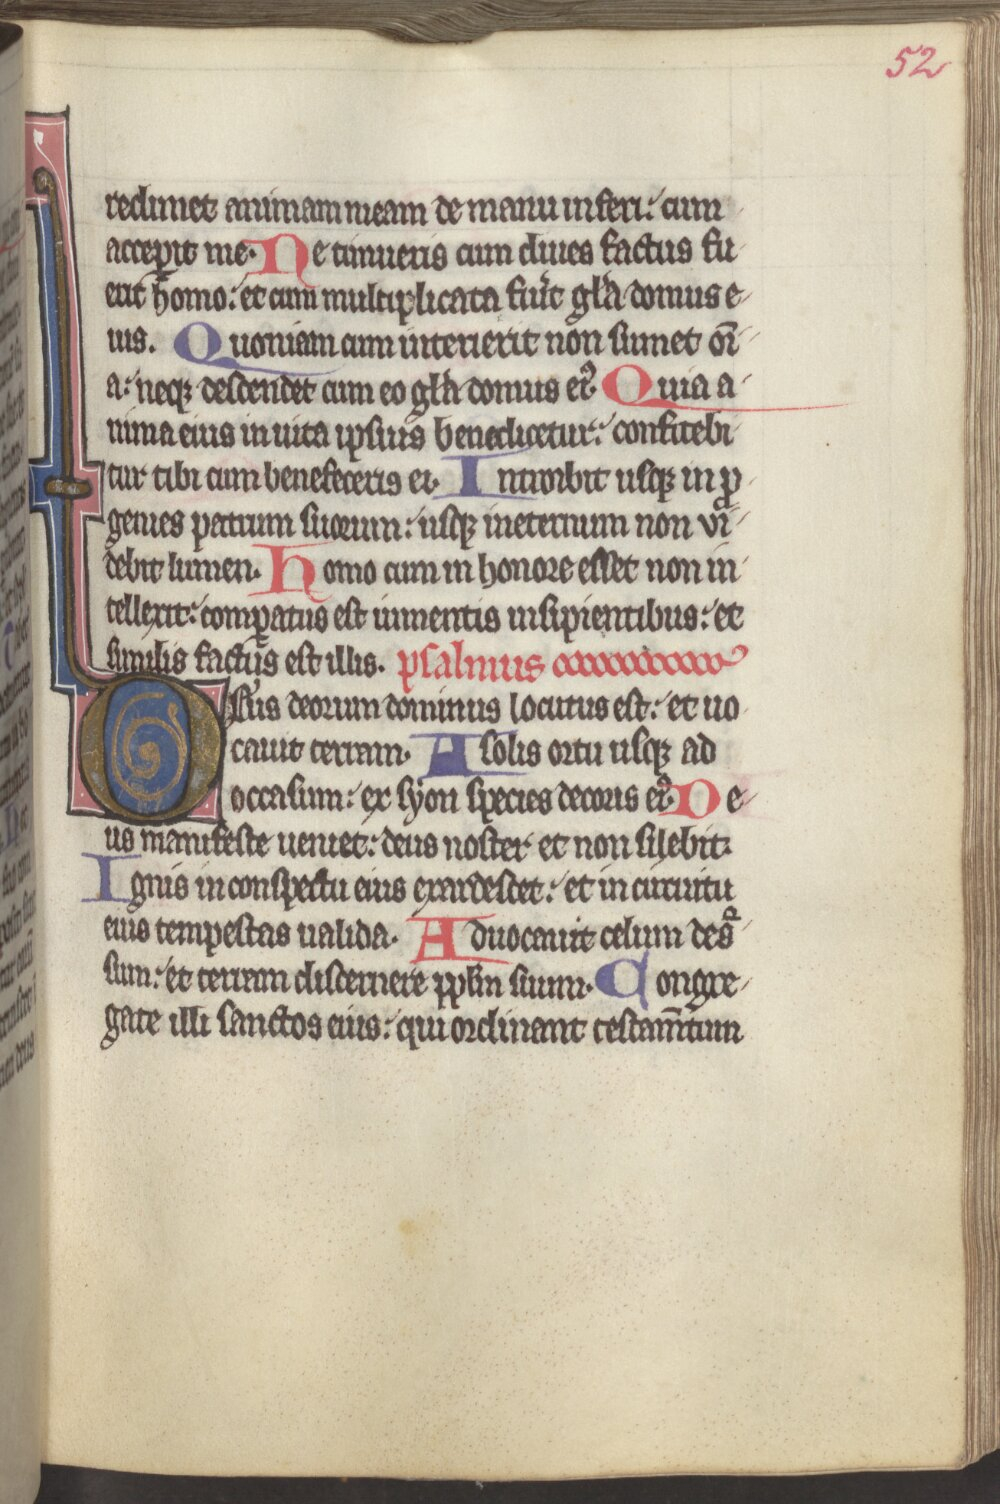 52
redimet animam meam de manu inferi: cum
acceperit me. Ne timueris cum diues factus fu
erit homo: et cum multiplicata fuerit gl̄a domus e
ius. Quoniam cum interierit non sumet om̄i
a: neqꝫ descendet cum eo gl̄a domus eiꝰ. Quia a
nima eius in uita ipsius benedicetur: confitebi
tur tibi cum benefeceris ei. Introibit usqꝫ in ꝓ
genies patrum suorum: usqꝫ ineternum non vi
debit lumen. Homo cum in honore esset non in
tellexit: comparatus est iumentis insipientibus: et
similis factus est illis. psalmus
Deus deorum dominus locutus est: et uo
cauit terram. A solis ortu usqꝫ ad
occasum: ex syon species decoris eiꝰ. De
us manifeste ueniet: deus noster et non silebit.
Ignis in conspectu eius exardescet: et in circuitu
eius tempestas ualida. Aduocauit celum desꝰ
sum: et terram discernere pplm̄ suum. Congre
gate illi sanctos eius: qui ordinant testam̄tum